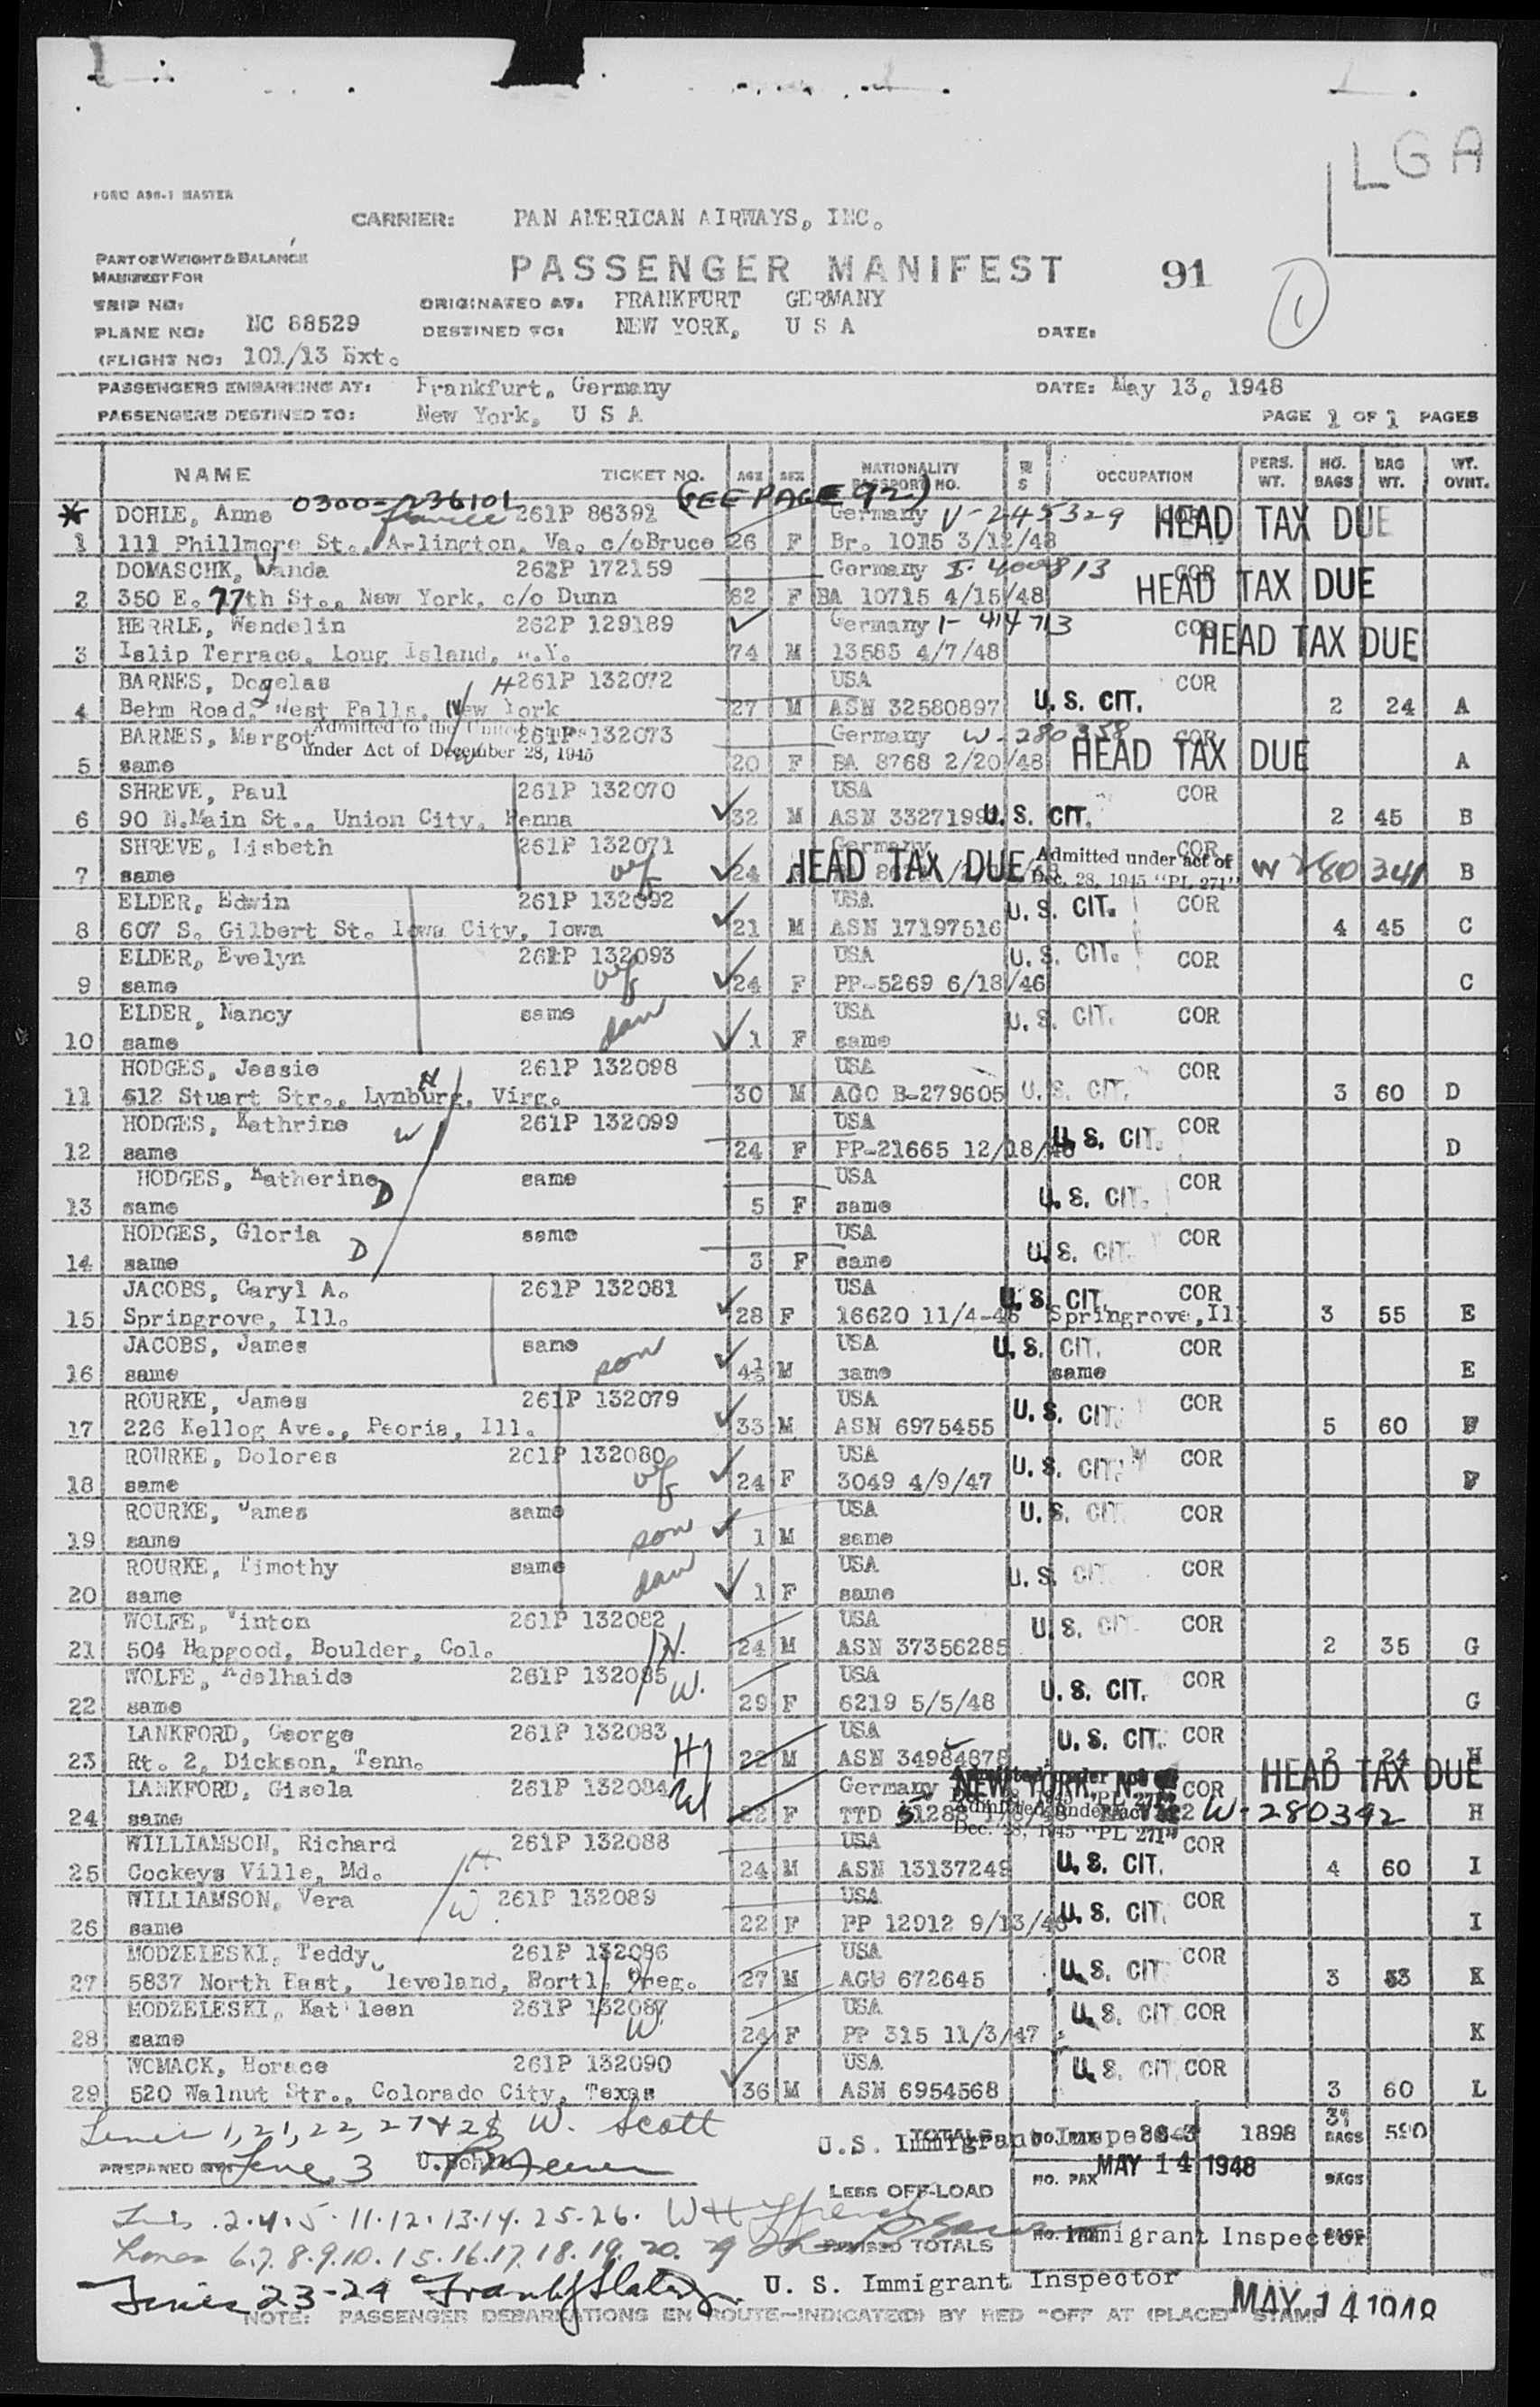 LGA
FORM A96-1 MASTER
CARRIER: PAN AMERICAN AIRWAYS, INC.
PART OF WEIGHT & BALANCE
MANIFEST FOR
PASSENGER MANIFEST 91 1
TRIP NO: ORIGINATED AT: FRANKFURT GERMANY
PLANE NO: NC 88529 DESTINED TO: NEW YORK, U S A DATE:
(FLIGHT NO: 101/13 Ext.
PASSENGERS EMBARKING AT: Frankfurt, Germany DATE: May 13, 1948
PASSENGERS DESTINED TO: New York, U S A PAGE 1 OF 1 PAGES
NAME TICKET NO. AGE SEX NATIONALITY PASSPORT NO. OCCUPATION PERS. WT. NO. BAGS BAG WT. WT. OVNT.
0300-236101 (SEE PAGE 92)
* DOHLE, Anne fiancee 261P 86391 Germany V-245329 COR HEAD TAX DUE
1 111 Phillmore St., Arlington, Va. c/oBruce 26 F Br. 1015 3/12/48
DOMASCHK, Wanda 262P 172159 Germany I-400813 COR HEAD TAX DUE
2 350 E. 77th St., New York, c/o Dunn 62 F BA 10715 4/15/48
HERRLE, Wendelin 262P 129189 Germany I-414713 COR HEAD TAX DUE
3 Islip Terrace, Long Island, N.Y. 74 M 13583 4/7/48
BARNES, Dogelas H 261P 132072 USA COR
4 Behm Road, West Falls, New York 27 M ASN 32580897 U.S. CIT. 2 24 A
Admitted to the United States
BARNES, Margot 261P 132073 Germany W-280358 COR
under Act of December 28, 1945 HEAD TAX DUE
5 same 20 F BA 8768 2/20/48 A
SHREVE, Paul 261P 132070 USA COR
6 90 N.Main St., Union City, Penna 32 M ASN 3327199 U.S. CIT. 2 45 B
SHREVE, Lisbeth 261P 132071 Germany COR
wf HEAD TAX DUE Admitted under act of W 280341
7 same 24 Dec. 28, 1945 "PL 271" B
ELDER, Edwin 261P 132092 USA U.S. CIT. COR
8 607 S. Gilbert St. Iowa City, Iowa 21 M ASN 17197516 4 45 C
ELDER, Evelyn 261P 132093 USA U.S. CIT. COR
9 same wf 24 F PP-5269 6/18/46 C
ELDER, Nancy same USA U.S. CIT. COR
10 same dau 1 F same
HODGES, Jessie 261P 132098 USA COR
11 612 Stuart Str., Lynburg, Virg. H 30 M AGO B-279605 U.S. CIT. 3 60 D
HODGES, Kathrine W 261P 132099 USA U.S. CIT. COR
12 same 24 F PP-21665 12/18/46 D
HODGES, Katherine D same USA COR
13 same 5 F same U.S. CIT.
HODGES, Gloria D same USA COR
14 same 3 F same U.S. CIT.
JACOBS, Caryl A. 261P 132081 USA U.S. CIT. COR
15 Springrove, Ill. 28 F 16620 11/4-46 Springrove,Ill 3 55 E
JACOBS, James same USA U.S. CIT. COR
16 same son 4½ M same same E
ROURKE, James 261P 132079 USA U.S. CIT. COR
17 226 Kellog Ave., Peoria, Ill. 33 M ASN 6975455 5 60 F
ROURKE, Dolores 261P 132080 USA U.S. CIT. COR
18 same wf 24 F 3049 4/9/47 F
ROURKE, James same USA U.S. CIT. COR
19 same son 1 M same
ROURKE, Timothy same USA U.S. CIT. COR
20 same dau 1 F same
WOLFE, Winton 261P 132082 USA U.S. CIT. COR
21 504 Hapgood, Boulder, Col. H. 24 M ASN 37356285 2 35 G
WOLFE, Adelhaide 261P 132085 USA COR
22 same W. 29 F 6219 5/5/48 U.S. CIT. G
LANKFORD, George 261P 132083 USA U.S. CIT. COR
23 Rt. 2, Dickson, Tenn. H 22 M ASN 34984878 2 24 H
LANKFORD, Gisela 261P 132084 W Germany NEW YORK, N. Y. COR HEAD TAX DUE
Admitted under act of
24 same 22 F TTD W-280392 H
Dec. 28, 1945 "PL 271"
WILLIAMSON, Richard 261P 132088 USA COR
25 Cockeys Ville, Md. H 24 M ASN 13137249 U.S. CIT. 4 60 I
WILLIAMSON, Vera W 261P 132089 USA COR
26 same 22 F PP 12912 9/13/46 U.S. CIT. I
MODZELESKI, Teddy 261P 132086 USA COR
27 5837 North East, leveland, Portl. Oreg. 27 M AGO 672645 U.S. CIT. 3 53 K
MODZELESKI, Kathleen 261P 132087 USA U.S. CIT. COR
28 same W 24 F PP 315 11/3/47 K
WOMACK, Horace 261P 132090 USA U.S. CIT. COR
29 520 Walnut Str., Colorado City, Texas 36 M ASN 6954568 3 60 L
Lines 1, 21, 22, 27 & 28 W. Scott
TOTALS 1898 31 BAGS 590
U.S. Immigrant Inspector
PREPARED BY: Line 3
NO. PAX MAY 14 1948 BAGS
LESS OFF-LOAD
Lines 2.4.5.11.12.13.14.25.26.
Immigrant Inspector BAGS
Lines 6.7.8.9.10.15.16.17.18.19.20.29 REVISED TOTALS
Lines 23-24 U. S. Immigrant Inspector
MAY 14 1948
NOTE: PASSENGER DEBARKATIONS EN ROUTE—INDICATE(D) BY RED "OFF AT (PLACE)" STAMP